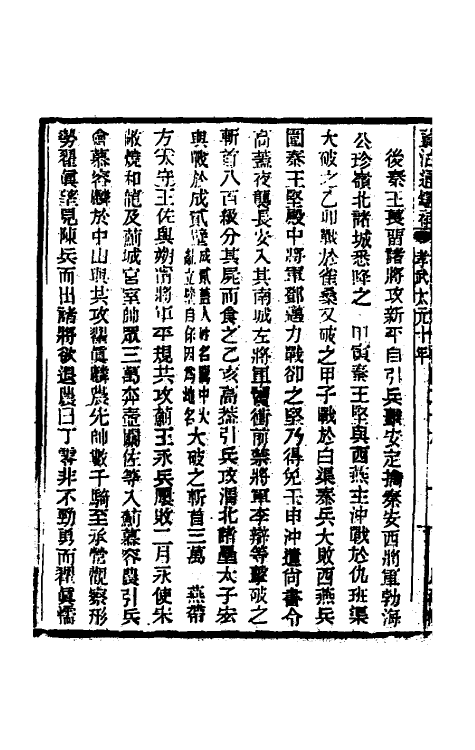 資治通鑑補 孝武太元十年
後秦王萇留諸將攻新平自引兵擊安定擒秦安西將軍勃海
公珍嶺北諸城悉降之 甲寅秦王堅與西燕主沖戰於仇班渠
大破之乙卯戰於雀桑又破之甲子戰於白渠秦兵大敗西燕兵
圍秦王堅殿中將軍鄧邁力戰卻之堅乃得免壬申沖遣尚書令
高蓋夜襲長安入其南城左將軍竇衝前禁將軍李辯等擊破之
斬首八百級分其屍而食之乙亥高蓋引兵攻渭北諸壘太子宏
與戰於成貳壁成貳蓋人姓名關中大亂立壁自保因為地名大破之斬首三萬 燕帶
方太守王佐與朔寧將軍平規共攻薊王永兵屢敗二月永使宋
敞燒和龍及薊城宮室帥眾三萬奔壺關佐等入薊慕容農引兵
會慕容麟於中山與共攻翟真麟農先帥數千騎至承營觀察形
勢翟真望見陳兵而出諸將欲退農曰丁零非不勁勇而翟真懦